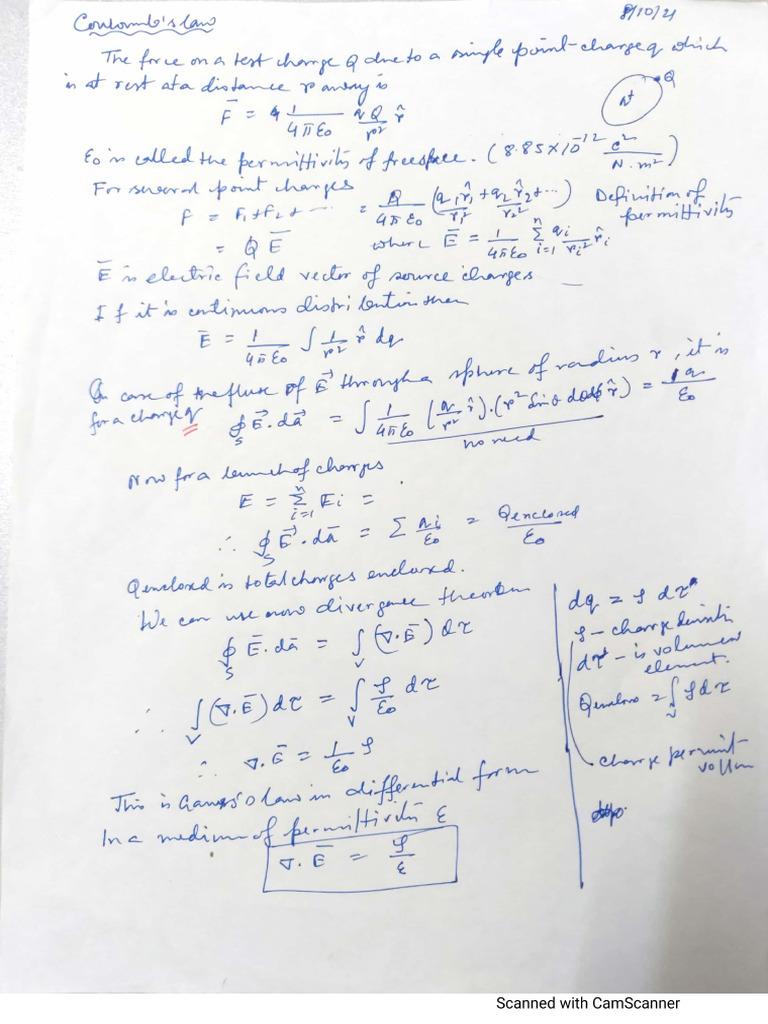 Coulomb's law
8/10/21
The force on a test charge Q due to a single point-charge q which
is at rest at a distance r away is
F̄ = 1/4πε₀ qQ/r² r̂
Q
ε₀ is called the permittivity of free space. (8.85×10⁻¹² C²/N·m²)
For several point charges
F = F₁+F₂+ ---- = Q/4πε₀ (q₁r̂₁/r₁² + q₂r̂₂/r₂² + ...) Definition of permittivity
= Q Ē where Ē = 1/4πε₀ Σᵢ₌₁ⁿ qᵢ/rᵢ² r̂ᵢ
Ē is electric field vector of source charges
If it is continuous distribution then
Ē = 1/4πε₀ ∫ 1/r² r̂ dq
In case of the flux of E⃗ through a sphere of radius r, it is
for a charge q ∮ₛ E⃗.da⃗ = ∫ 1/4πε₀ (q/r² r̂).(r² sinθ dθdφ r̂) = q/ε₀
no need
Now for a bunch of charges
E = Σᵢ₌₁ⁿ Eᵢ =
∴ ∮ₛ E⃗.dā = Σ qᵢ/ε₀ = Qenclosed/ε₀
Qenclosed is total charges enclosed.
We can use now divergence theorem
∮ₛ Ē.dā = ∫ᵥ (∇.Ē) dτ
∴ ∫ᵥ (∇.Ē) dτ = ∫ᵥ ρ/ε₀ dτ
∴ ∇.Ē = 1/ε₀ ρ
This is Gauss's law in differential form
In a medium of permittivity ε
∇.Ē = ρ/ε
dq = ρ dτ
ρ - charge density
dτ - is volume
element.
= ∫ᵥ ρdτ
charge per unit
Scanned with CamScanner